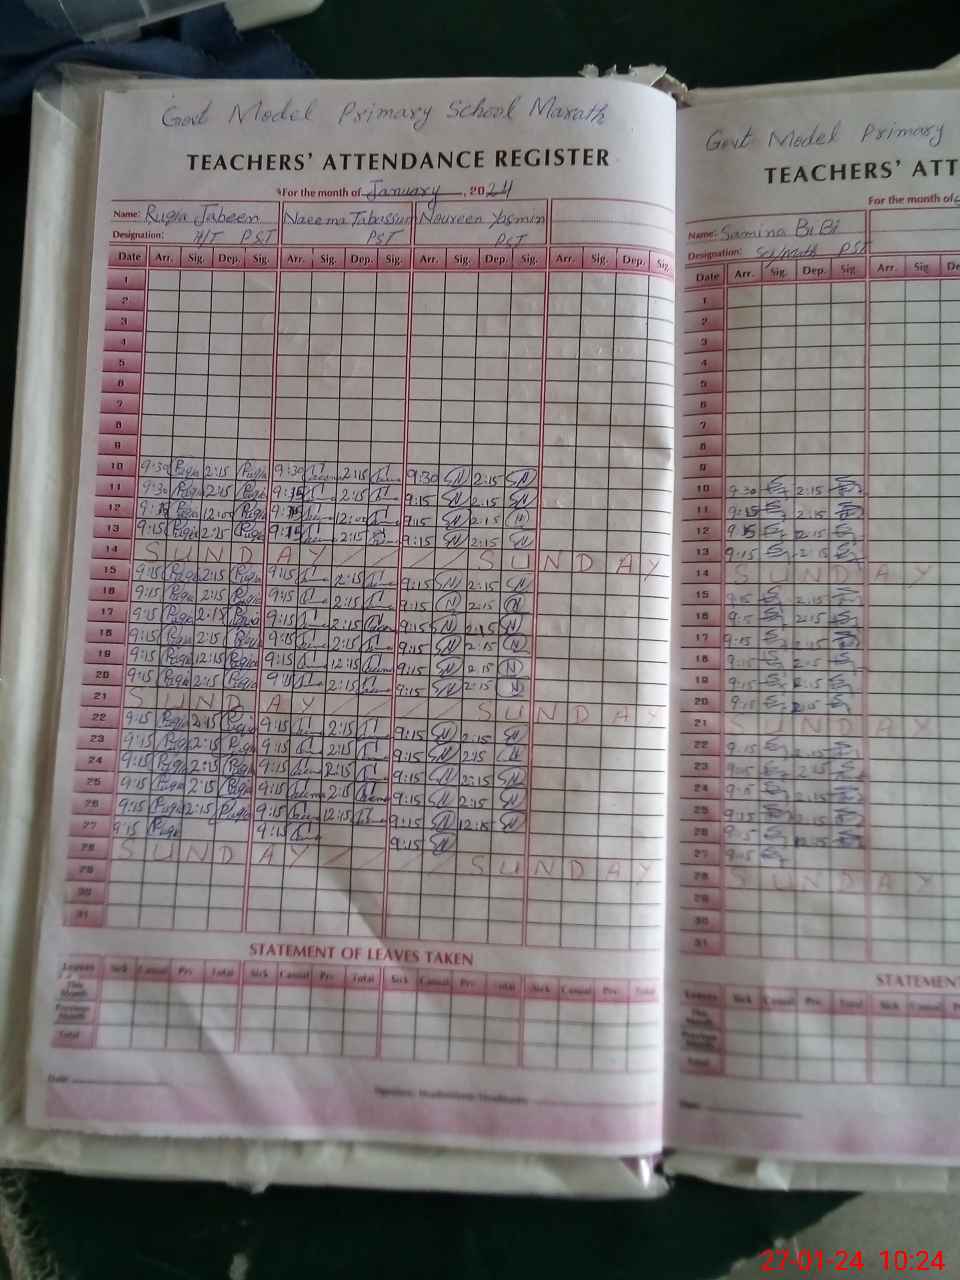 Govt Model Primary School Marath
TEACHERS' ATTENDANCE REGISTER
For the month of January, 2024
Name: Ruqia Jabeen Naeema Tabassum Noureen Yasmin
Designation: H/T PST PST PST
Date Arr. Sig. Dep. Sig. Arr. Sig. Dep. Sig. Arr. Sig. Dep. Sig. Arr. Sig. Dep. Sig.
1
2
3
4
5
6
7
8
9
10 9:30 2:15 9:30 2:15 9:30 SN 2:15 SN
11 9:30 2:15 9:15 2:15 9:15 SN 2:15 SN
12 9:15 12:00 9:15 12:00 9:15 SN 2:15 N
13 9:15 2:15 9:15 2:15 9:15 SN 2:15 SN
14 SUNDAY / / / SUNDAY
15 9:15 2:15 9:15 2:15 9:15 SN 2:15 SN
16 9:15 2:15 9:15 2:15 9:15 N 2:15 N
17 9:15 2:15 9:15 2:15 9:15 SN 2:15 SN
18 9:15 2:15 9:15 2:15 9:15 SN 2:15 N
19 9:15 12:15 9:15 12:15 9:15 SN 2:15 N
20 9:15 2:15 9:15 2:15 9:15 SN 2:15 N
21 SUNDAY / / / / SUNDAY
22 9:15 2:15 9:15 2:15 9:15 SN 2:15 SN
23 9:15 2:15 9:15 2:15 9:15 SN 2:15
24 9:15 2:15 9:15 2:15 9:15 SN 2:15 SN
25 9:15 2:15 9:15 2:15 9:15 SN 2:15 SN
26 9:15 2:15 9:15 12:15 9:15 SN 12:15 SN
27 9:15 9:15 9:15 SN
28 SUNDAY / / / / SUNDAY
29
30
31
STATEMENT OF LEAVES TAKEN
Leaves Sick Casual Prv. Total Sick Casual Prv. Total Sick Casual Prv. Total Sick Casual Prv. Total
This Month
Previous Month
Total
Date:
Govt Model Primary
TEACHERS' ATT
For the month of
Name: Samina BiBi
Designation: Sci/Math PST
Date Arr. Sig. Dep. Sig. Arr. Sig. De
1
2
3
4
5
6
7
8
9
10 9:30 2:15
11 9:15 2:15
12 9:15 2:15
13 9:15 2:15
14 SUNDAY
15 9:15 2:15
16 9:15 2:15
17 9:15 2:15
18 9:15 2:15
19 9:15 2:15
20 9:15 2:15
21 SUNDAY
22 9:15 2:15
23 9:15 2:15
24 9:15 2:15
25 9:15 2:15
26 9:15 12:15
27 9:15
28 SUNDAY
29
30
31
STATEMENT
Leaves Sick Casual Prv. Total Sick Casual P
This Month
Previous Month
Total
27-01-24 10:24